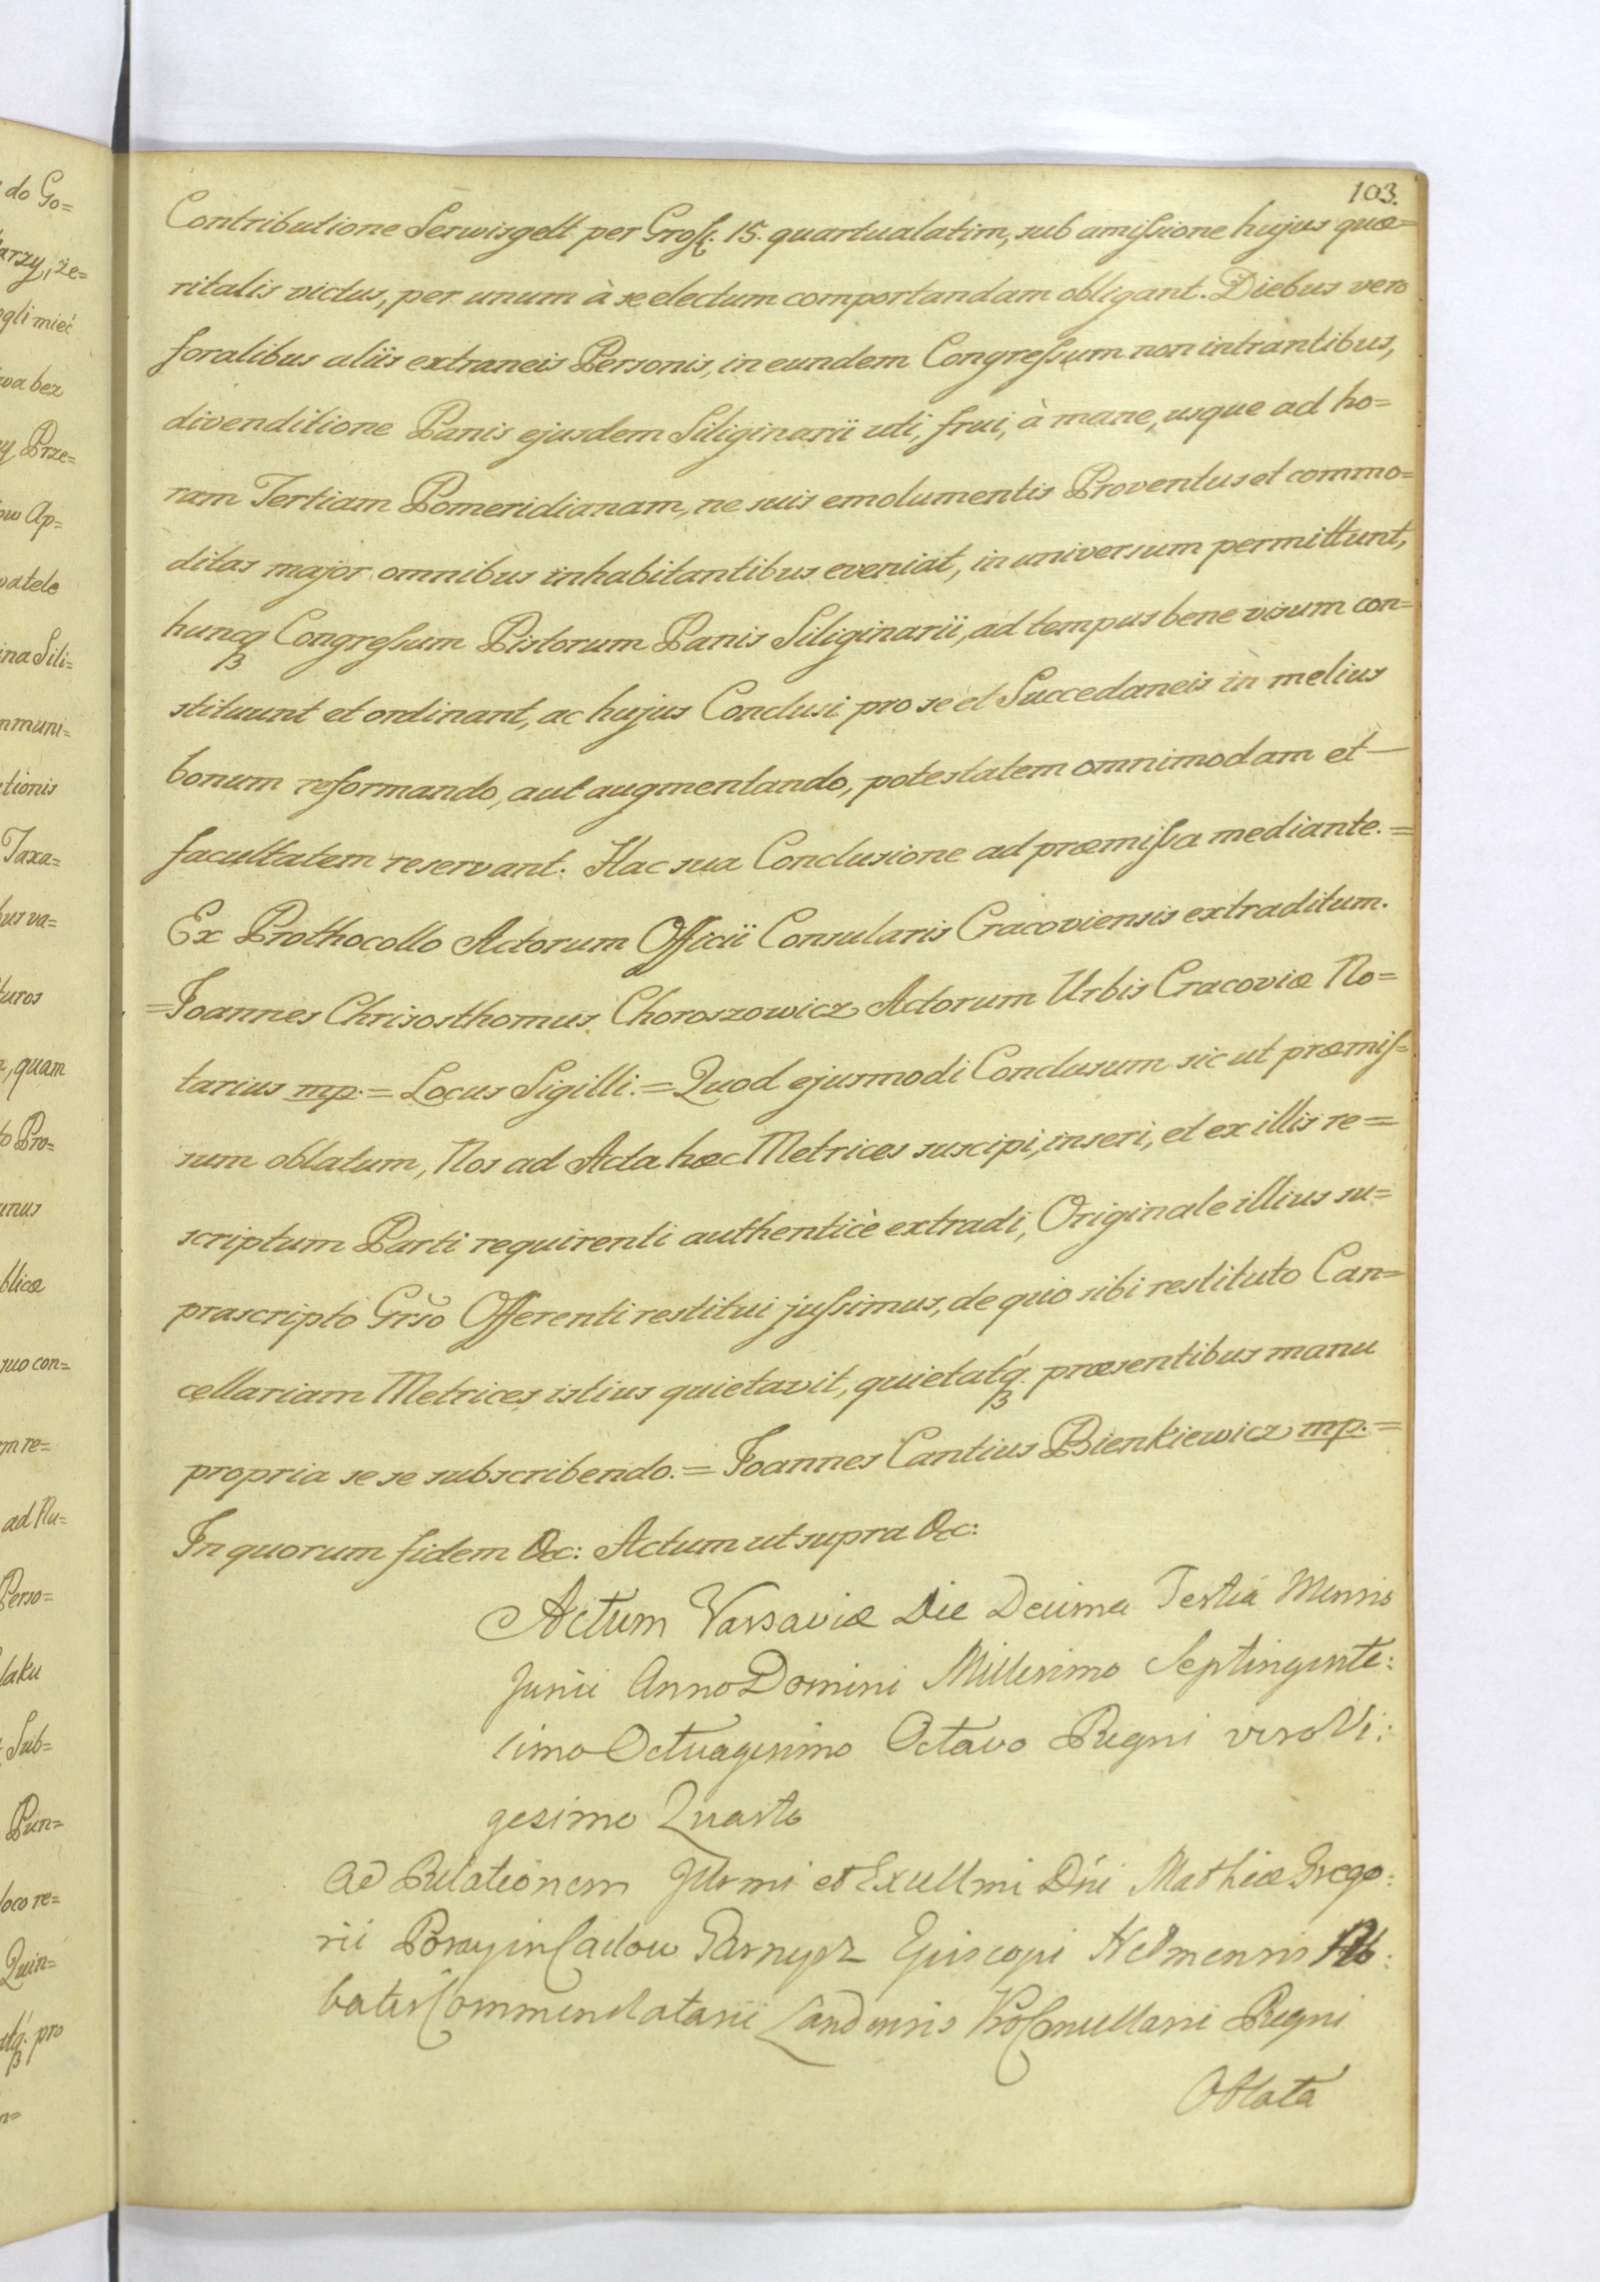 do Go=
arzy, ze=
ogli mieć
wa bez
y Prze=
ow Ap=
watele
ina Sili=
mmuni=
tionis
Taxa=
bus va=
turos
, quam
to Pro=
unus
blicæ
suo con=
m re=
ad Nu=
Perso=
laku
Sub=
Pun=
loco re=
Quin=
atq. pro
103.
Contributione Serwisgelt per Gross: 15. quartualatim, sub amissione hujus quæ=
ritalis victus, per unum à se electum comportandam obligant. Diebus vero
foralibus aliis extraneis Personis, in eundem Congressum non intrantibus,
divenditione Panis ejusdem Siliginarii uti, frui, à mane, usque ad ho=
ram Tertiam Pomeridianam, ne suis emolumentis Proventus et commo=
ditas major omnibus inhabitantibus eveniat, in universum permittunt,
huncq Congressum Pistorum Panis Siliginarii, ad tempus bene visum con=
stituunt et ordinant, ac hujus Conclusi pro se et Succedaneis in melius
bonum reformando, aut augmentando, potestatem omnimodam et
facultatem reservant. Hac sua Conclusione ad præmissa mediante. =
Ex Prothocollo Actorum Officii Consularis Cracoviensis extraditum.
= Joannes Chrisosthomus Choroszowicz Actorum Urbis Cracoviæ No=
tarius mp. = Locus Sigilli. = Quod ejusmodi Conclusum sic ut præmis=
sum oblatum, Nos ad Acta hæc Metrices suscipi, inseri, et ex illis re=
scriptum Parti requirenti authenticè extradi, Originale illius su=
prascripto Grso Offerenti restitui jussimus, de quo sibi restituto Can=
cellariam Metrices istius quietavit, quietatq. præsentibus manu
propria se se subscribendo. = Joannes Cantius Bienkiewicz mp. =
In quorum fidem &c: Actum ut supra &c:
Actum Varsaviæ Die Decima Tertia Mensis
Junii Anno Domini Millesimo Septingente:
simo Octuagesimo Octavo Regni vero Vi:
gesimo Quarto
Ad Relationem Illsmi et Excellmi Dni Mathiæ Grego:
rii Poray in Garnysz Episcopi Helmensis Ab:
batis Commendatarii Landensis Regni
Oblata